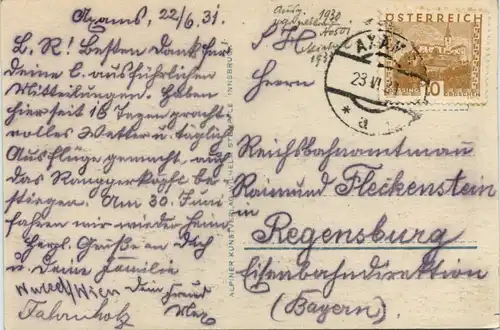 Axams, 22/6.31.
L. R! Besten Dank für
Deine l. ausführlichen
Mitteilungen. Haben
hier seit 16 Tagen pracht
volles Wetter u. täglich
Ausflüge gemacht, auch
das Ranggerköpfl be-
stiegen. Am 30. Juni
fahren wir wieder heim
Herzl. Grüße an Dich
u. Deine Familie
Dein Freund
Max
ALPINER KUNSTVERLAG WILHELM STEMPFLE, INNSBRUCK
1930
ÖSTERREICH
AXAMS
23 VI
* a
10
Herrn
Reichsbahnamtmann
Raimund Fleckenstein
in
Regensburg
Eisenbahndirektion
(Bayern)